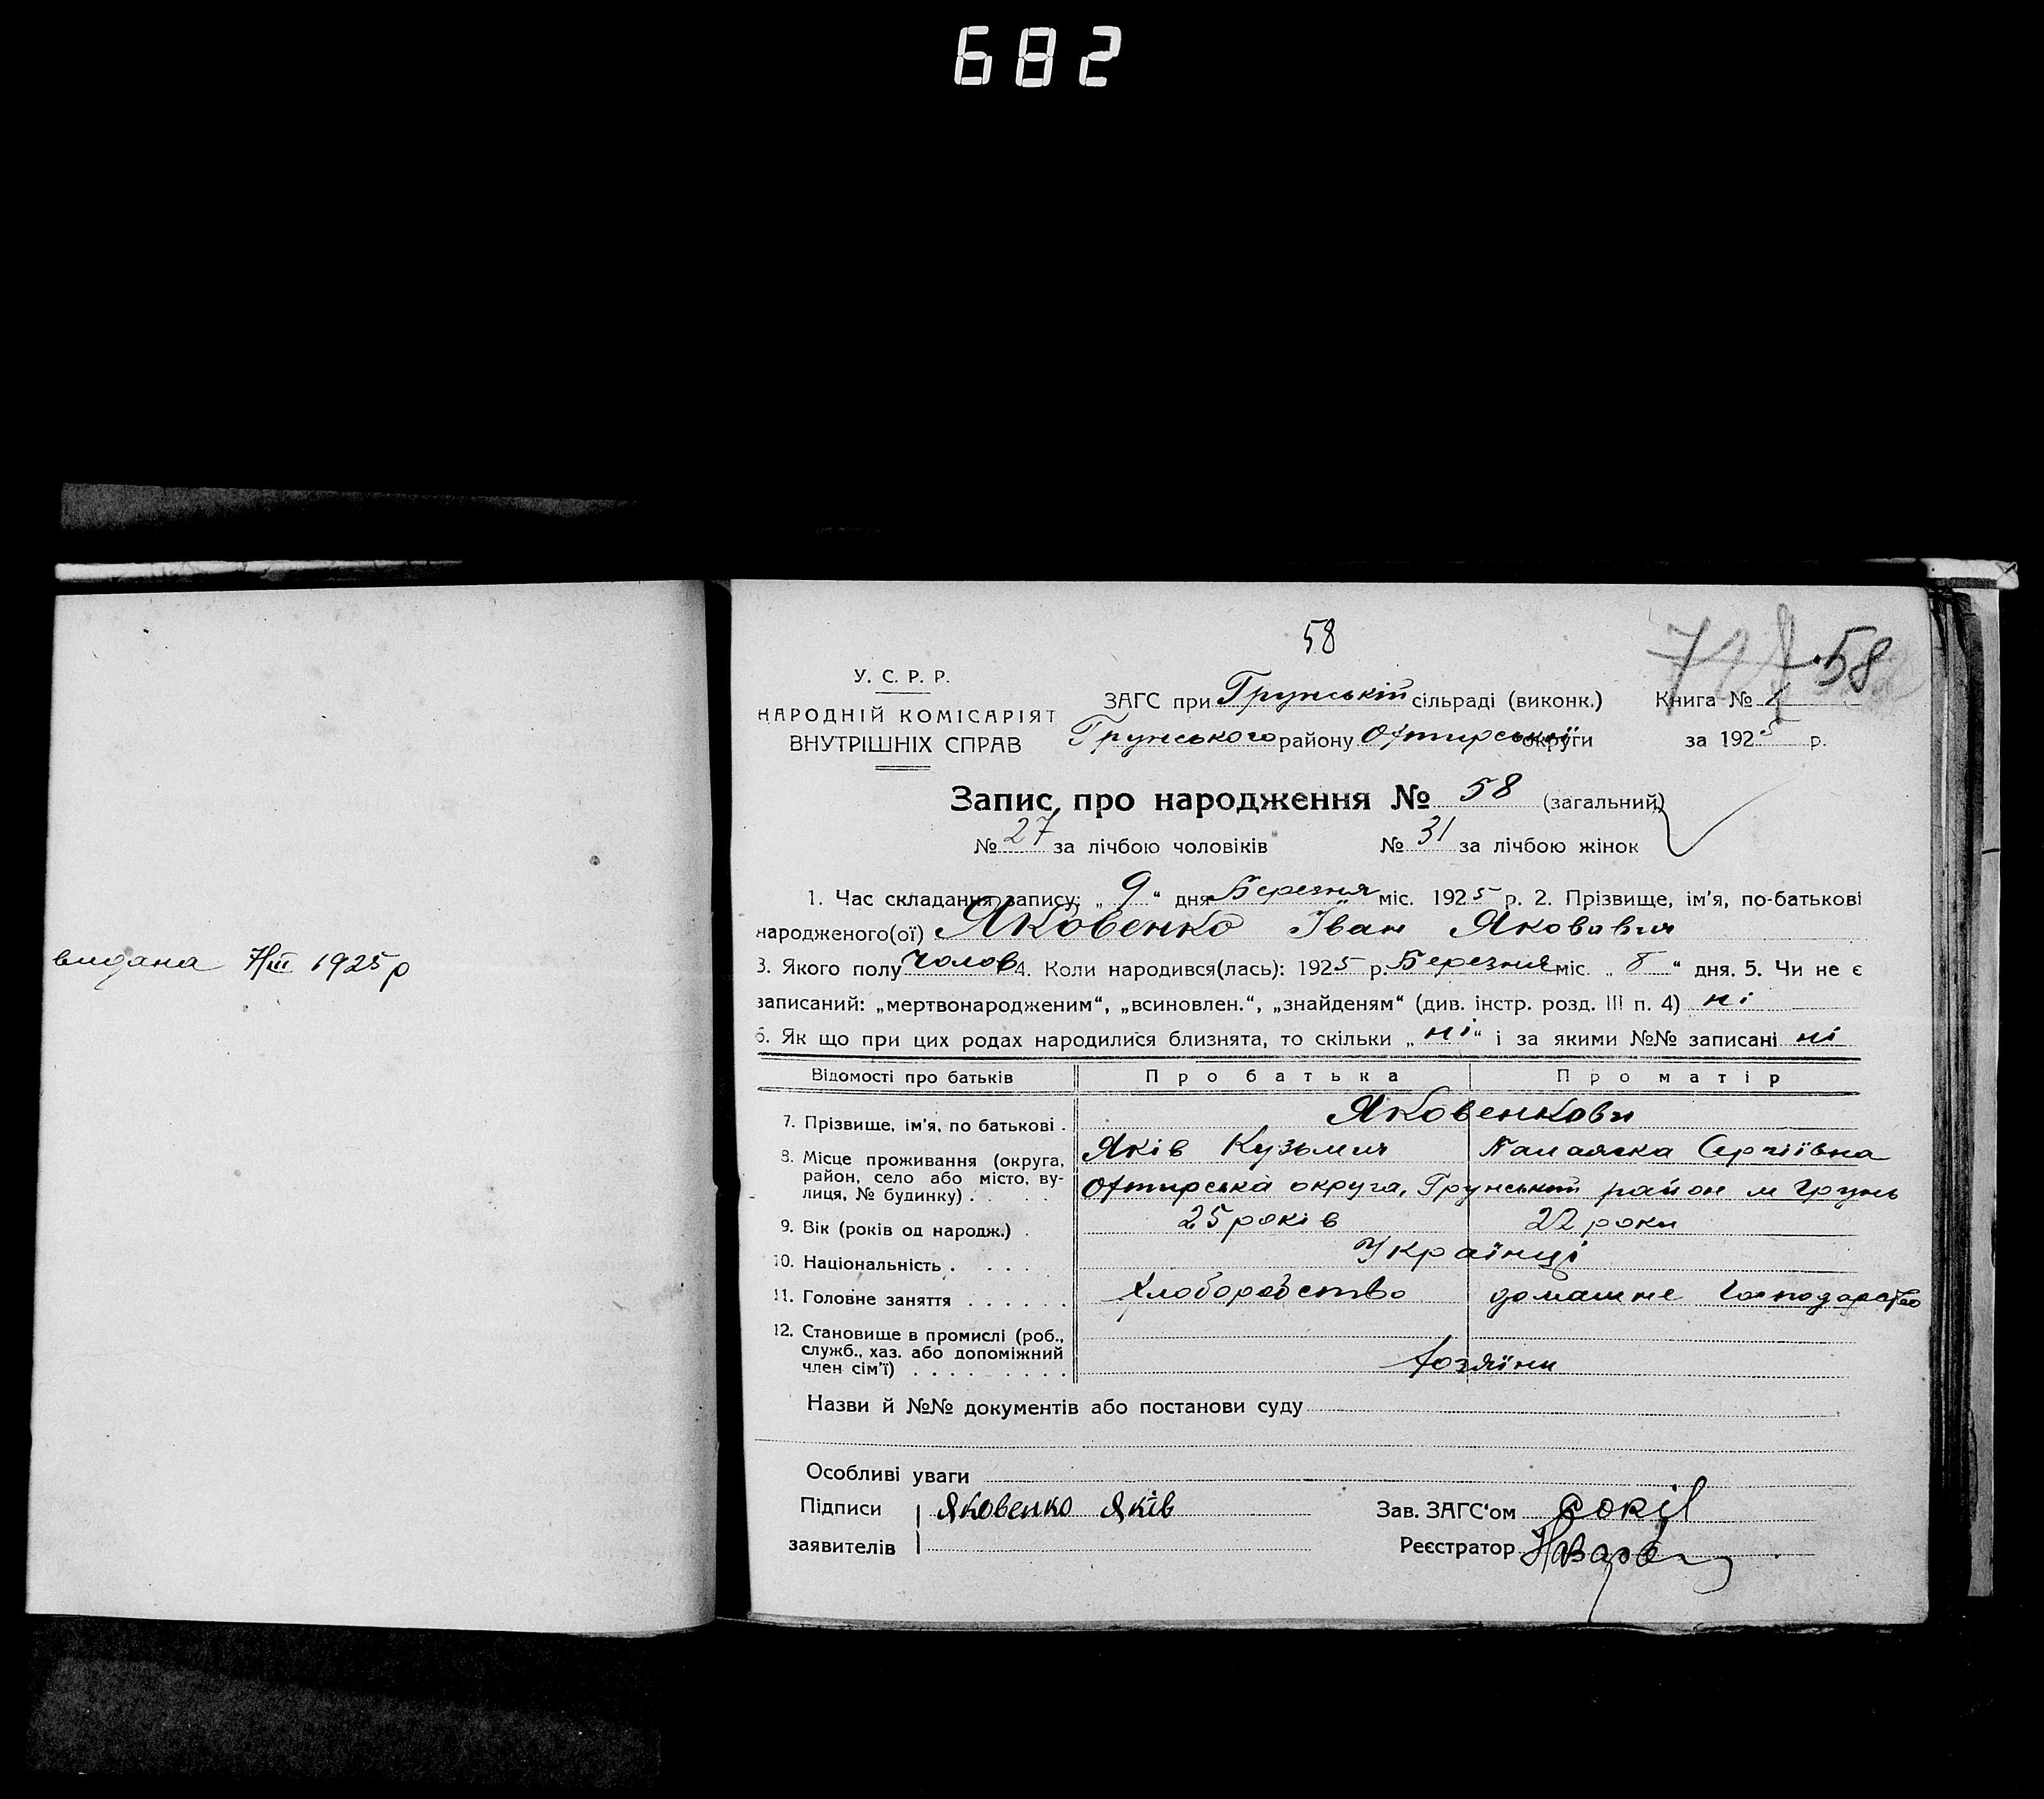 682
видана 7/III 1925 р
58
58
У. С. Р. Р.
НАРОДНІЙ КОМІСАРІЯТ
ВНУТРІШНІХ СПРАВ
ЗАГС при Грунській сільраді (виконк.)
Книга № 1
Грунського району Охтирської округи
за 1925 р.
Запис про народження № 58 (загальний)
№ 27 за лічбою чоловіків № 31 за лічбою жінок
1. Час складання запису: „ 9 “ дня Березня міс. 1925 р. 2. Прізвище, ім'я, по-батькові
народженого(ої) Яковенко Іван Яковович
3. Якого полу Чолов 4. Коли народився(лась): 1925 р. Березня міс. „ 8 “ дня. 5. Чи не є
записаний: „мертвонародженим“, „всиновлен.“, „знайденям“ (див. інстр. розд. III п. 4) ні
6. Як що при цих родах народилися близнята, то скільки „ ні “ і за якими №№ записані ні
Відомості про батьків Про батька Про матір
7. Прізвище, ім'я, по батькові . Яковенкови
Яків Кузьмич Сергіївна
8. Місце проживання (округа, район, село або місто, ву-
лиця, № будинку) . . . . Охтирська округа, Грунський район м Грунь
9. Вік (років од народж.) . 25 років 22 роки
10. Національність . . . . Українці
11. Головне заняття . . . . . . Хлоборобство домашнє господарство
12. Становище в промислі (роб.,
служб., хаз. або допоміжний
член сім'ї) . . . . . . . . . хозяїни
Назви й №№ документів або постанови суду
Особливі уваги
Підписи Яковенко Яків
Зав. ЗАГС'ом Сокіл
заявителів
Реєстратор